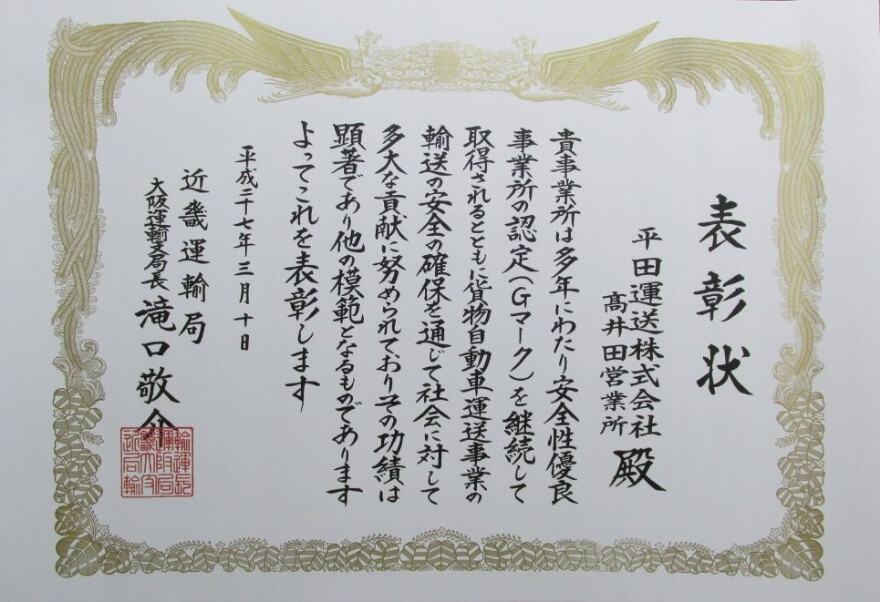 表彰状
平田運送株式会社
髙井田営業所 殿
貴事業所は多年にわたり安全性優良
事業所の認定(Gマーク)を継続して
取得されるとともに貨物自動車運送事業の
輸送の安全の確保を通じて社会に対して
多大な貢献に努められておりその功績は
顕著であり他の模範となるものであります
よってこれを表彰します
平成二十七年三月十日
近畿運輸局
大阪運輸支局長 滝口敬介